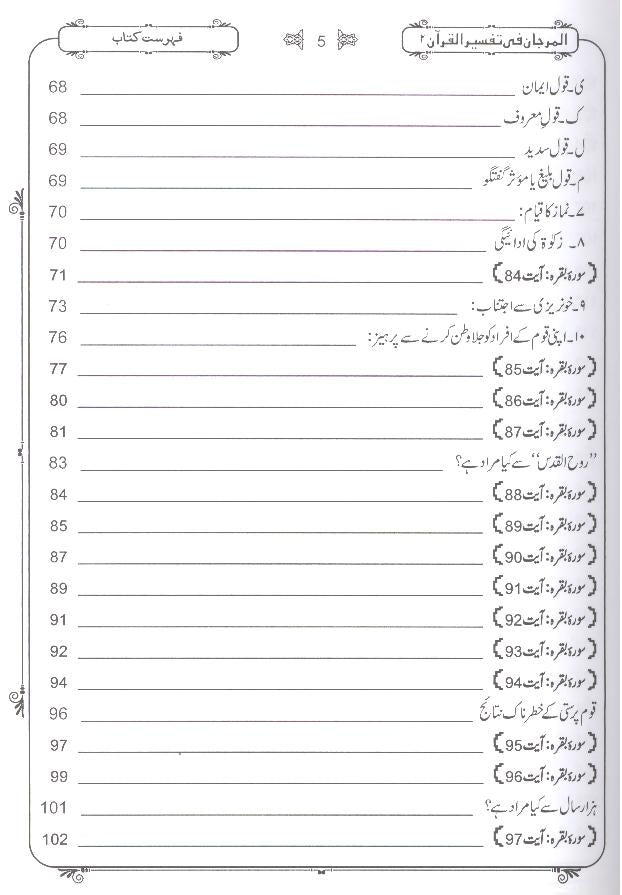 المرجان فی تفسیر القرآن ۲ 5 فہرست کتاب
ی۔ قول ایمان 68
ک۔ قولِ معروف 68
ل۔ قول سدید 69
م۔ قول بلیغ یا مؤثر گفتگو 69
۷۔ نماز کا قیام: 70
۸۔ زکوٰۃ کی ادائیگی 70
(سورۂ بقرہ: آیت 84) 71
۹۔ خونریزی سے اجتناب: 73
۱۰۔ اپنی قوم کے افراد کو جلا وطن کرنے سے پرہیز: 76
(سورۂ بقرہ: آیت 85) 77
(سورۂ بقرہ: آیت 86) 80
(سورۂ بقرہ: آیت 87) 81
”روح القدس“ سے کیا مراد ہے؟ 83
(سورۂ بقرہ: آیت 88) 84
(سورۂ بقرہ: آیت 89) 85
(سورۂ بقرہ: آیت 90) 87
(سورۂ بقرہ: آیت 91) 89
(سورۂ بقرہ: آیت 92) 91
(سورۂ بقرہ: آیت 93) 92
(سورۂ بقرہ: آیت 94) 94
قوم پرستی کے خطرناک نتائج 96
(سورۂ بقرہ: آیت 95) 97
(سورۂ بقرہ: آیت 96) 99
ہزار سال سے کیا مراد ہے؟ 101
(سورۂ بقرہ: آیت 97) 102